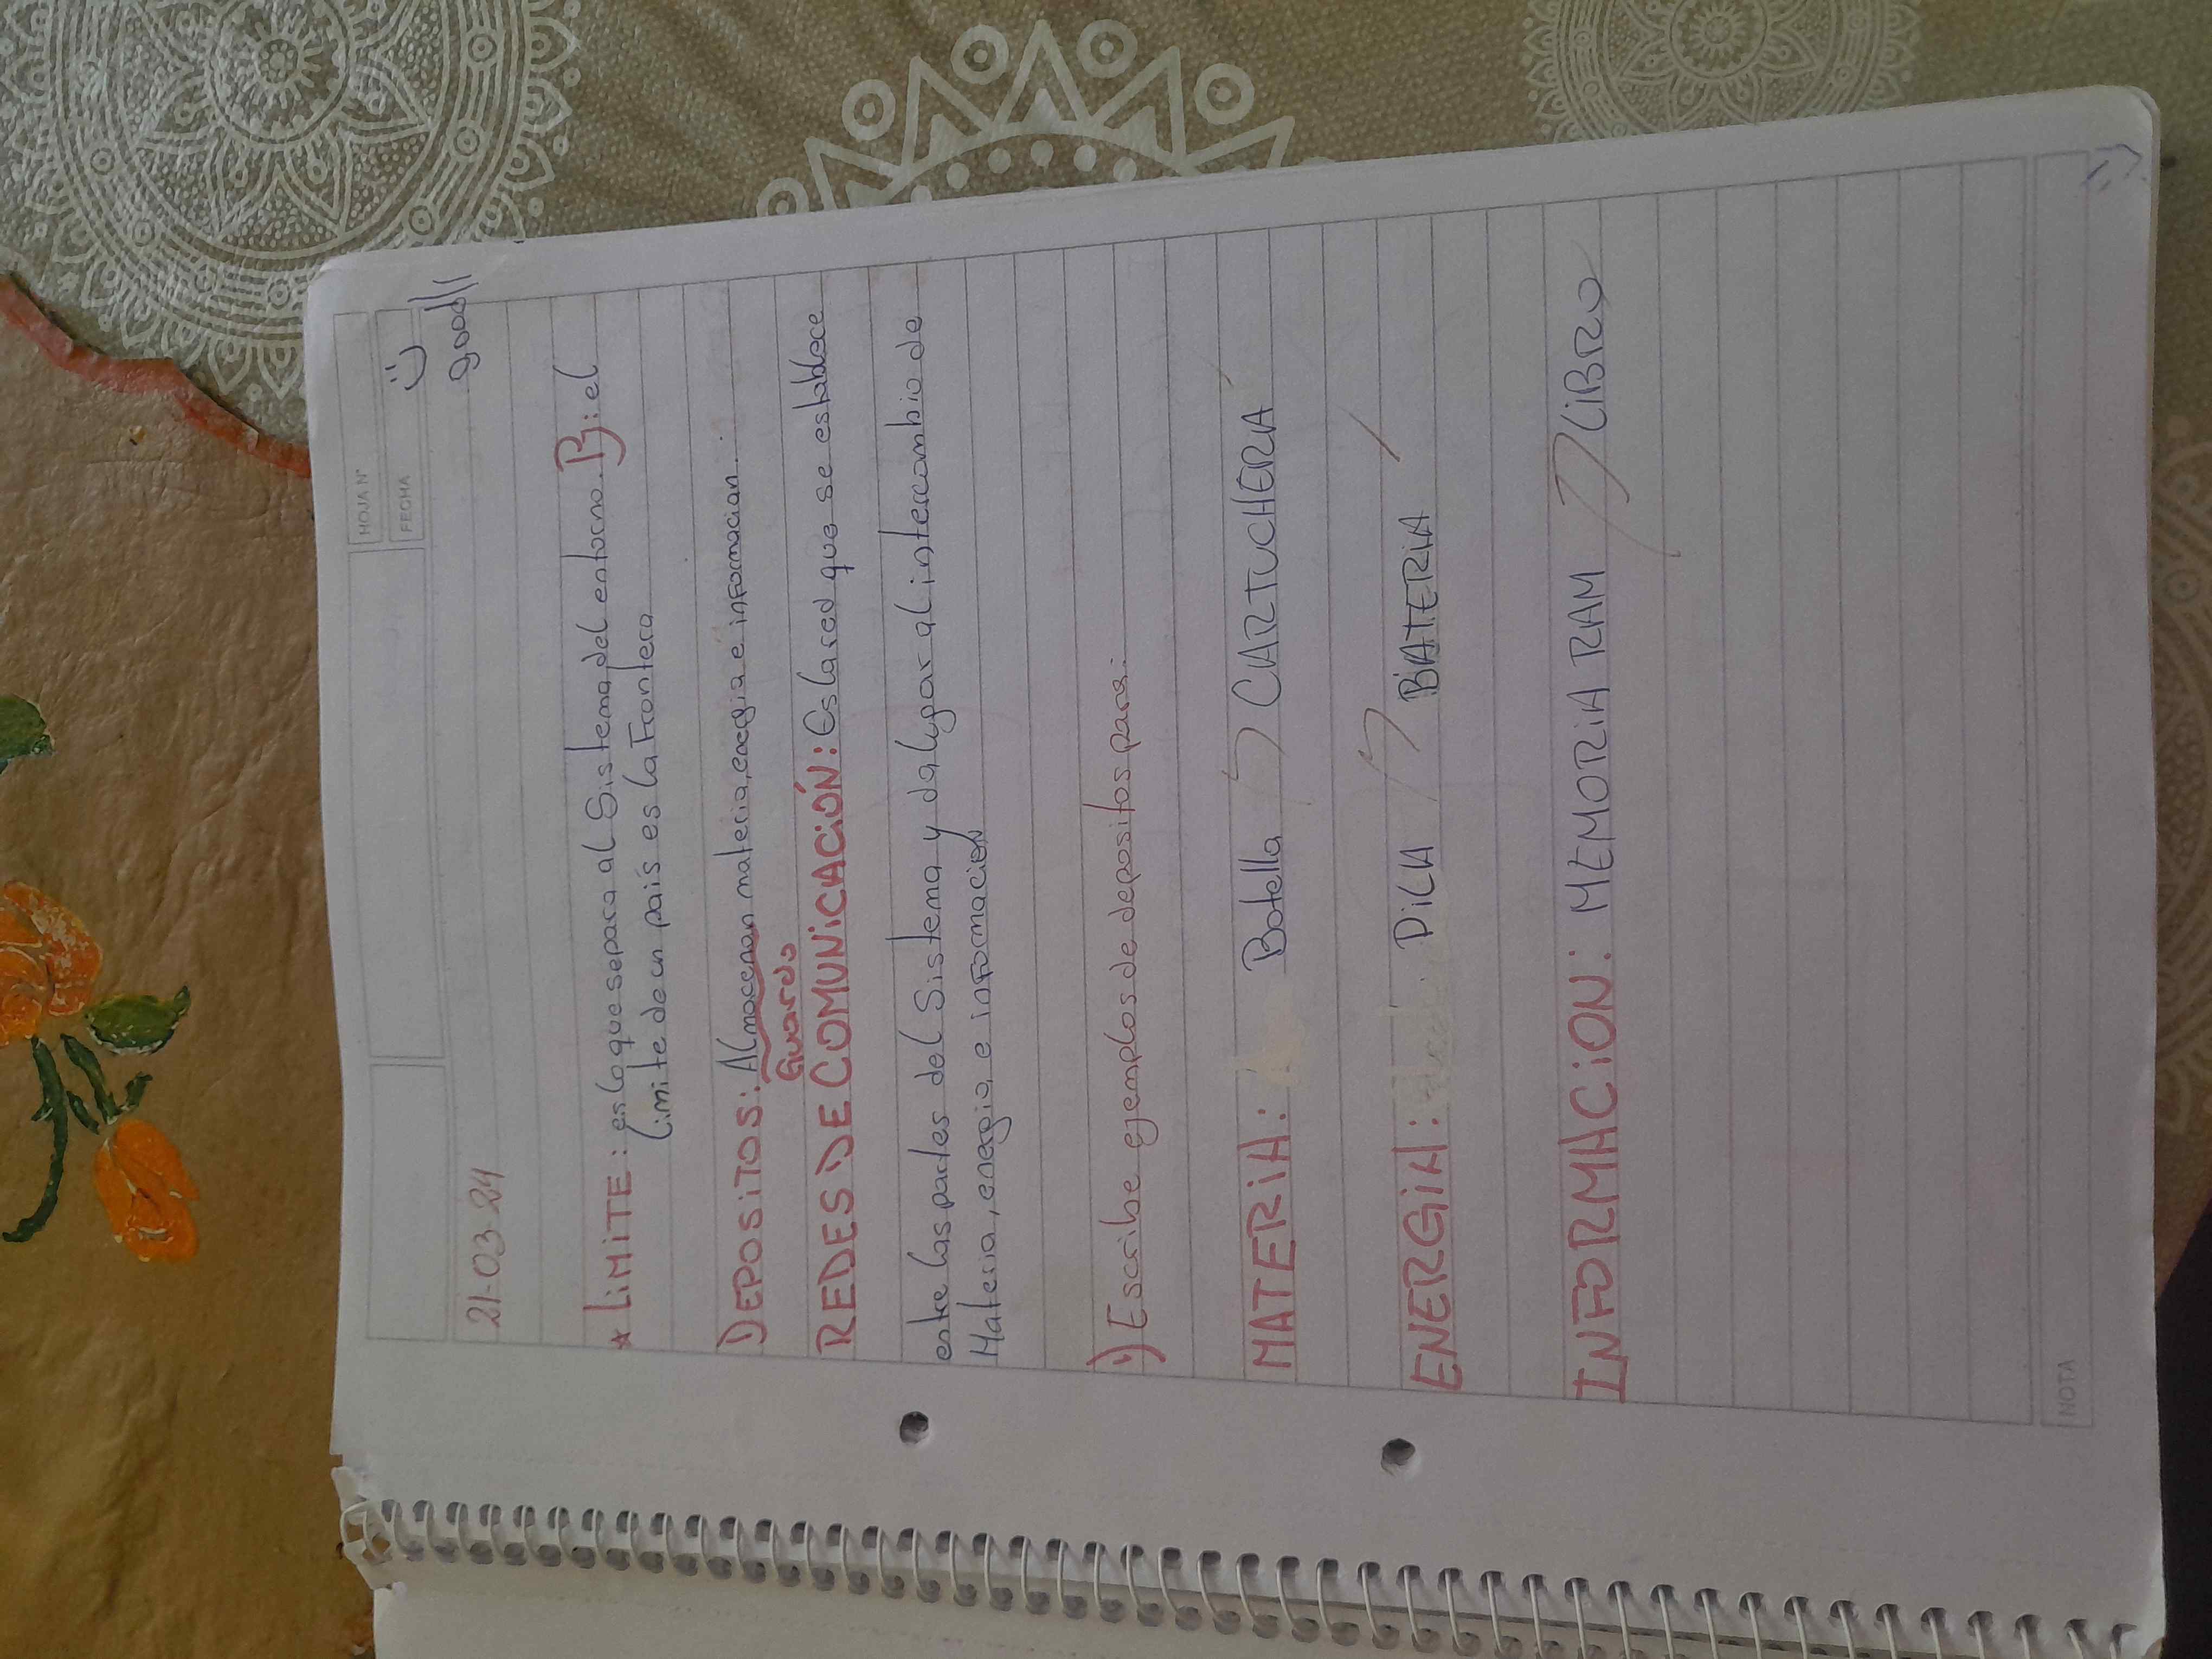 HOJA N°
FECHA
good!!
21-03-24
* LiMiTE : es lo que separa al Sistema del entorno. Pj: el
limite de un país es la Frontera
DEPOSITOS: Almacenan materia, energia e informacion.
Guardo
REDES DE COMUNiCACiÓN: Es la red que se establece
entre las partes del Sistema y da lugar al intercambio de
Materia, energia e informacion
1) Escribe ejemplos de depositos para:
MATERiA: Botella / CARTUCHERA
ENERGiA: PiLA / BATERiA
INFORMACiON: MEMORiA RAM / LiBRO
NOTA